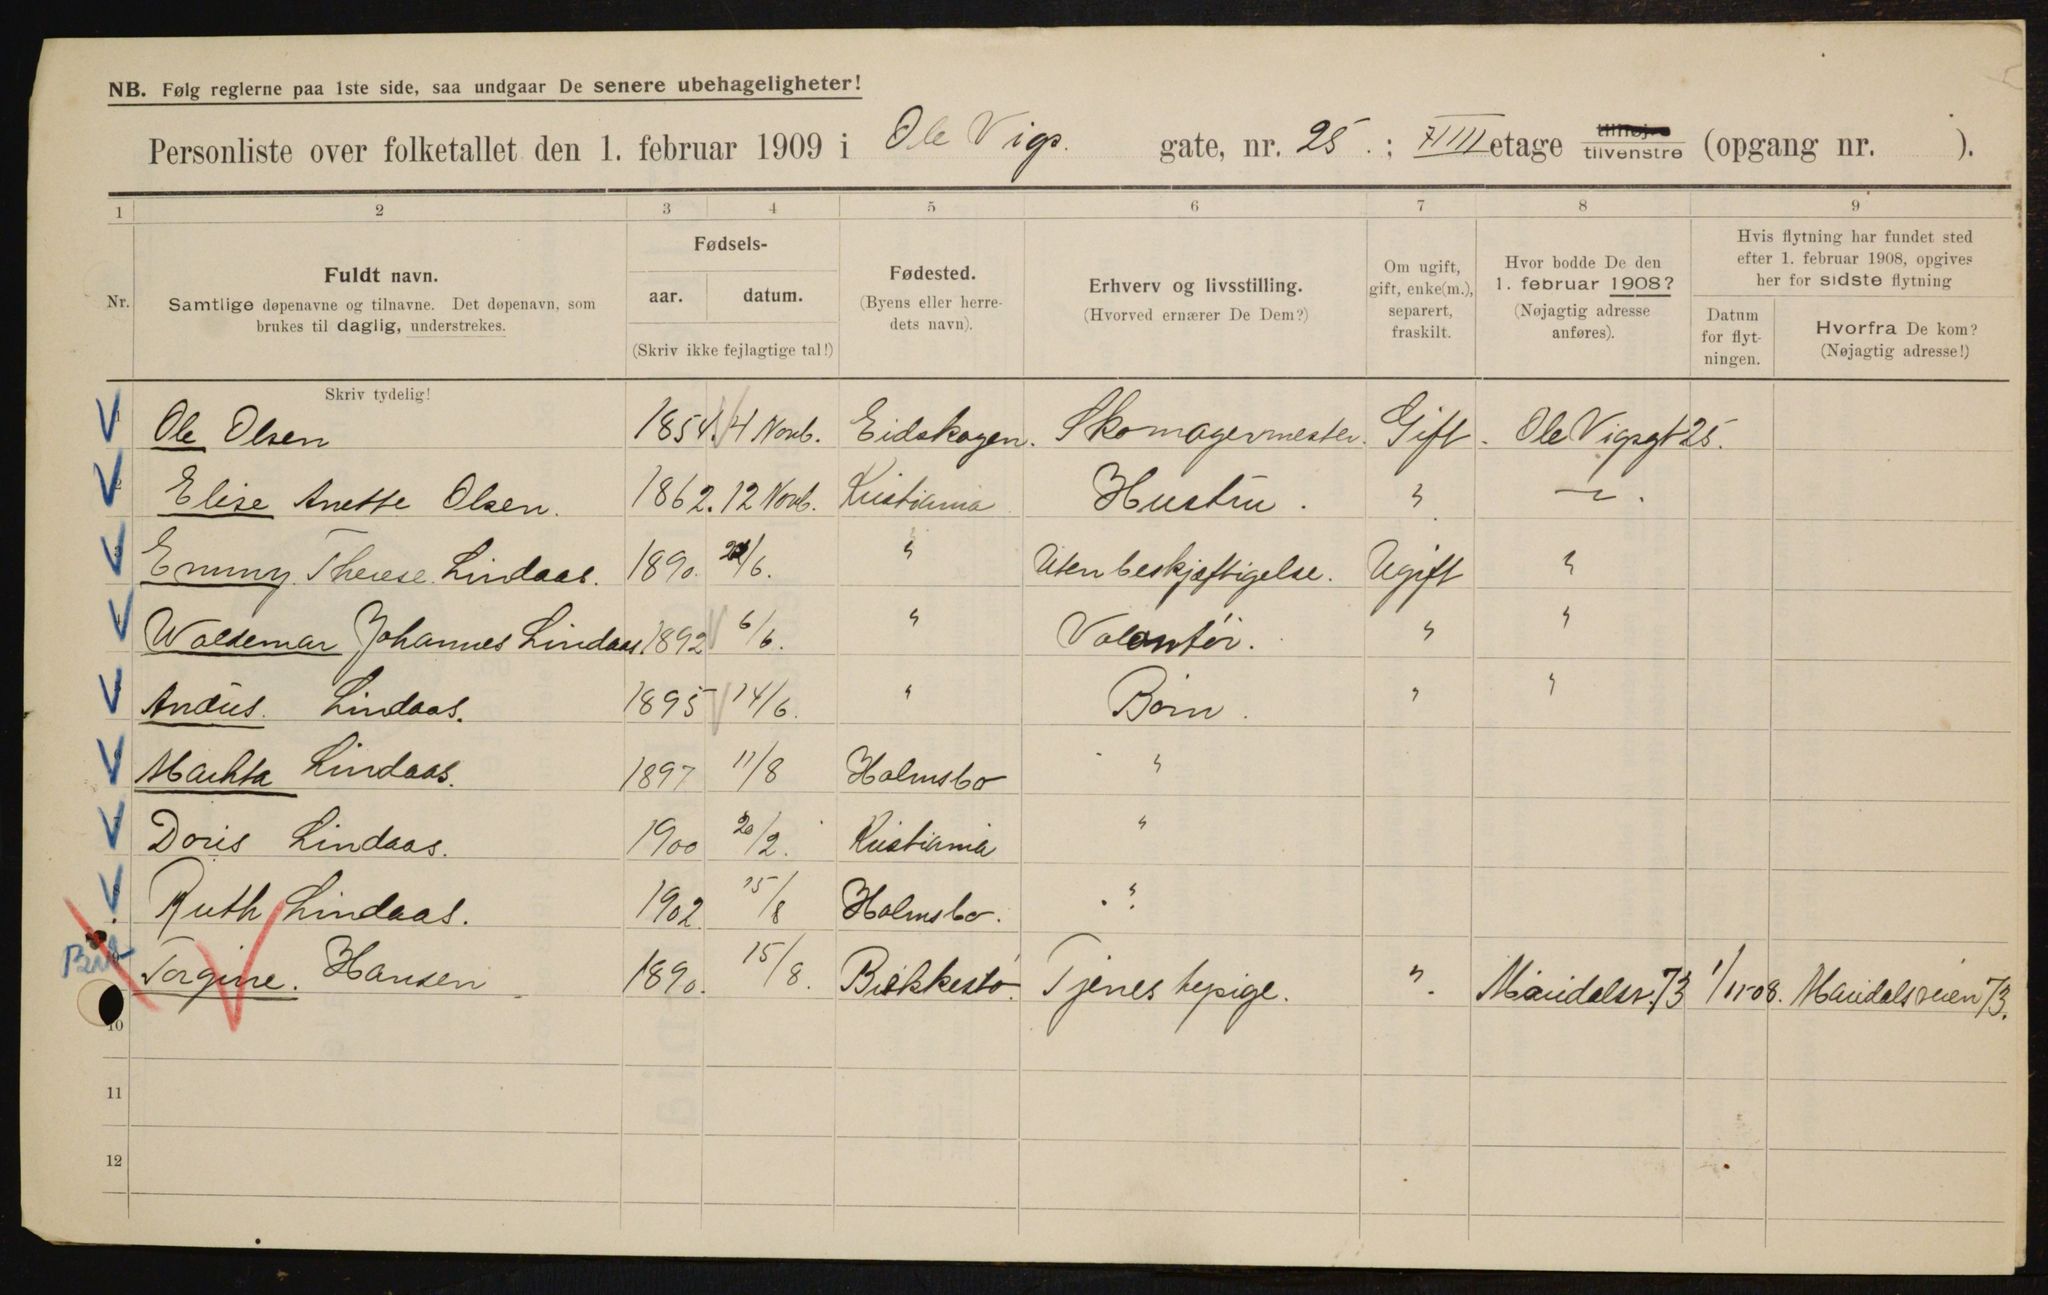 NB. Følg reglerne paa 1ste side, saa undgaar De senere ubehageligheter!
Personliste over folketallet den 1. februar 1909 i Ole Vigs. gate, nr. 25. ; etage tilvenstre (opgang nr. ).
1 2 3 4 5 6 7 8 9
Nr.
Fuldt navn.
Samtlige døpenavne og tilnavne. Det døpenavn, som
brukes til daglig, understrekes.
Fødsels-
aar. datum.
(Skriv ikke fejlagtige tal!)
Fødested.
(Byens eller herre-
dets navn).
Erhverv og livsstilling.
(Hvorved ernærer De Dem?)
Om ugift,
gift, enke(m.),
separert,
fraskilt.
Hvor bodde De den
1. februar 1908?
(Nøjagtig adresse
anføres).
Hvis flytning har fundet sted
efter 1. februar 1908, opgives
her for sidste flytning
Datum
for flyt-
ningen.
Hvorfra De kom?
(Nøjagtig adresse!)
Skriv tydelig!
Ole Olsen 1854. 4 Novb. Eidskogen. Skomagermester. Gift. Ole Vigsgt 25.
Elise Anette Olsen. 1862. 12 Novb. Kristiania Hustru. " — " .
Emmy Therese Lindaas. 1890. /6. " Uten beskjæftigelse. Ugift "
Waldemar Johannes Lindaas. 1892 6/6. " Volontør. " "
Andus. Lindaas. 1895 14/6. " Børn. " "
Machta Lindaas. 1897 11/8 Holmsbo "
Doris Lindaas. 1900 20/2. Kristiania "
Ruth Lindaas. 1902. 15/8 Holmsbo. "
Torgine. Hansen 1890. 15/8. Brekkestø. Tjenestepige. " Maridalsv. 73 1/11-08. Maridalsveien 73.
10
11
12